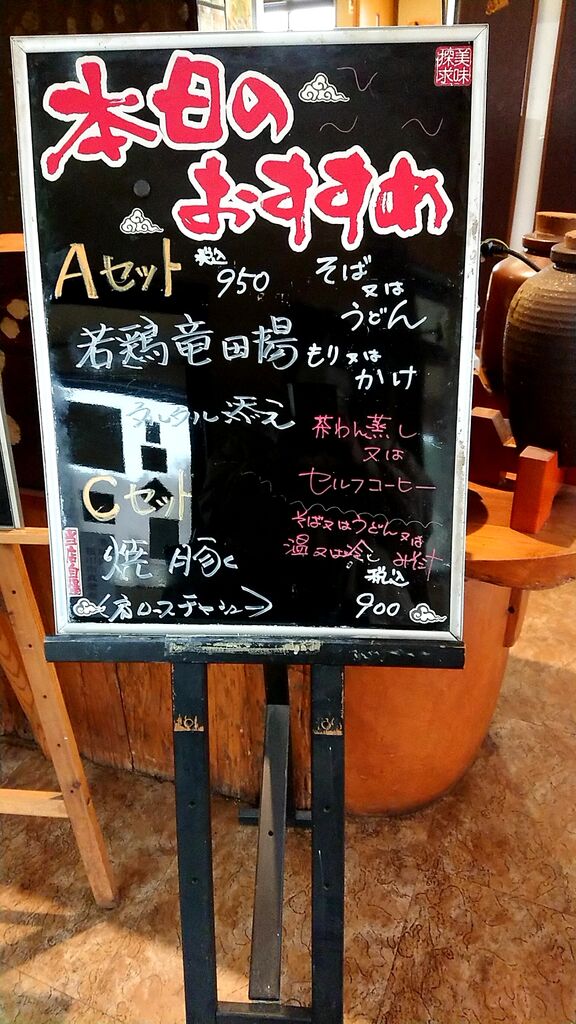 美味
探求
本日の
おすすめ
Aセット 税込 950
そば
又は
うどん
若鶏竜田揚
もり又は
かけ
タルタル添え
茶わん蒸し
又は
セルフコーヒー
Cセット
そば又はうどん又は
温又は冷し みそ汁
焼豚
税込
900
(肩ロースチャーシュー)
当店自慢